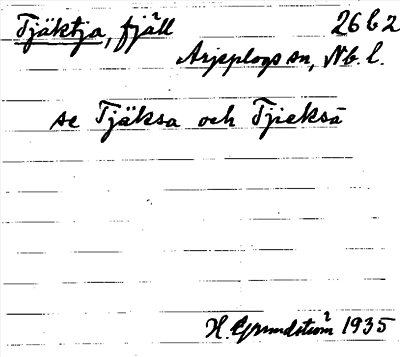 Tjäktja, fjäll 26 b 2
Arjeplogs sn, Nb. l.
se Tjäksa och Tjieksā
H. Grundström 1935